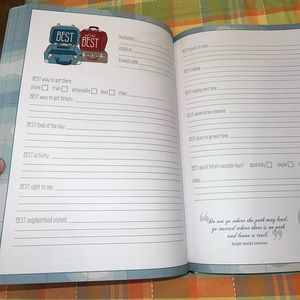 BEST
of the
BEST
Destination:
Visited on:
Traveled with:
BEST way to get there:
plane train automobile boat other
BEST way to get tickets:
BEST food of the day:
BEST activity:
BEST sight to see:
BEST neighborhood visited:
BEST place to stay:
BEST lodging:
BEST lodging next time:
BEST adventuresome moment:
BEST place to go next time:
BEST use of future vacation days? absolutely maybe
Notes:
Do not go where the path may lead,
go instead where there is no path
and leave a trail.
- Ralph Waldo Emerson